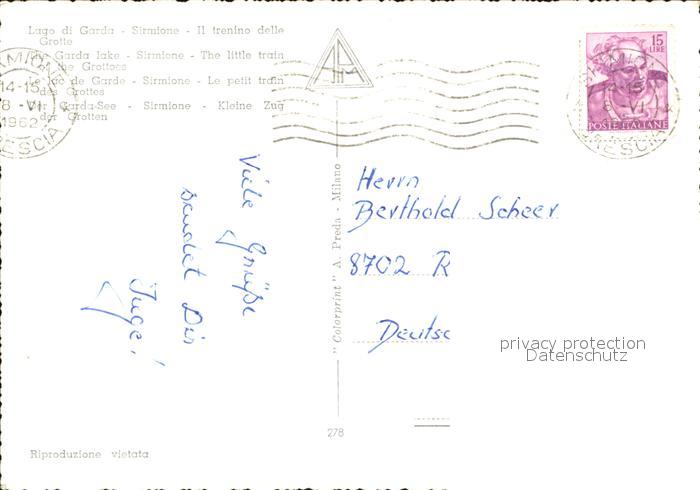 Lago di Garda - Sirmione - Il trenino delle
Grotte
The Garda lake - Sirmione - The little train
of the Grottoes
Le lac de Garde - Sirmione - Le petit train
des Grottes
Der Garda-See - Sirmione - Kleine Zug
der Grotten
14-15
8 - VI
1962
BRESCIA
15
LIRE
POSTE ITALIANE
Viele Grüße
sendet Dir
Inge!
"Colorprint" A. Preda - Milano
Herrn
Berthold Scheer
8702 R
Deutsc
privacy protection
Datenschutz
278
Riproduzione vietata